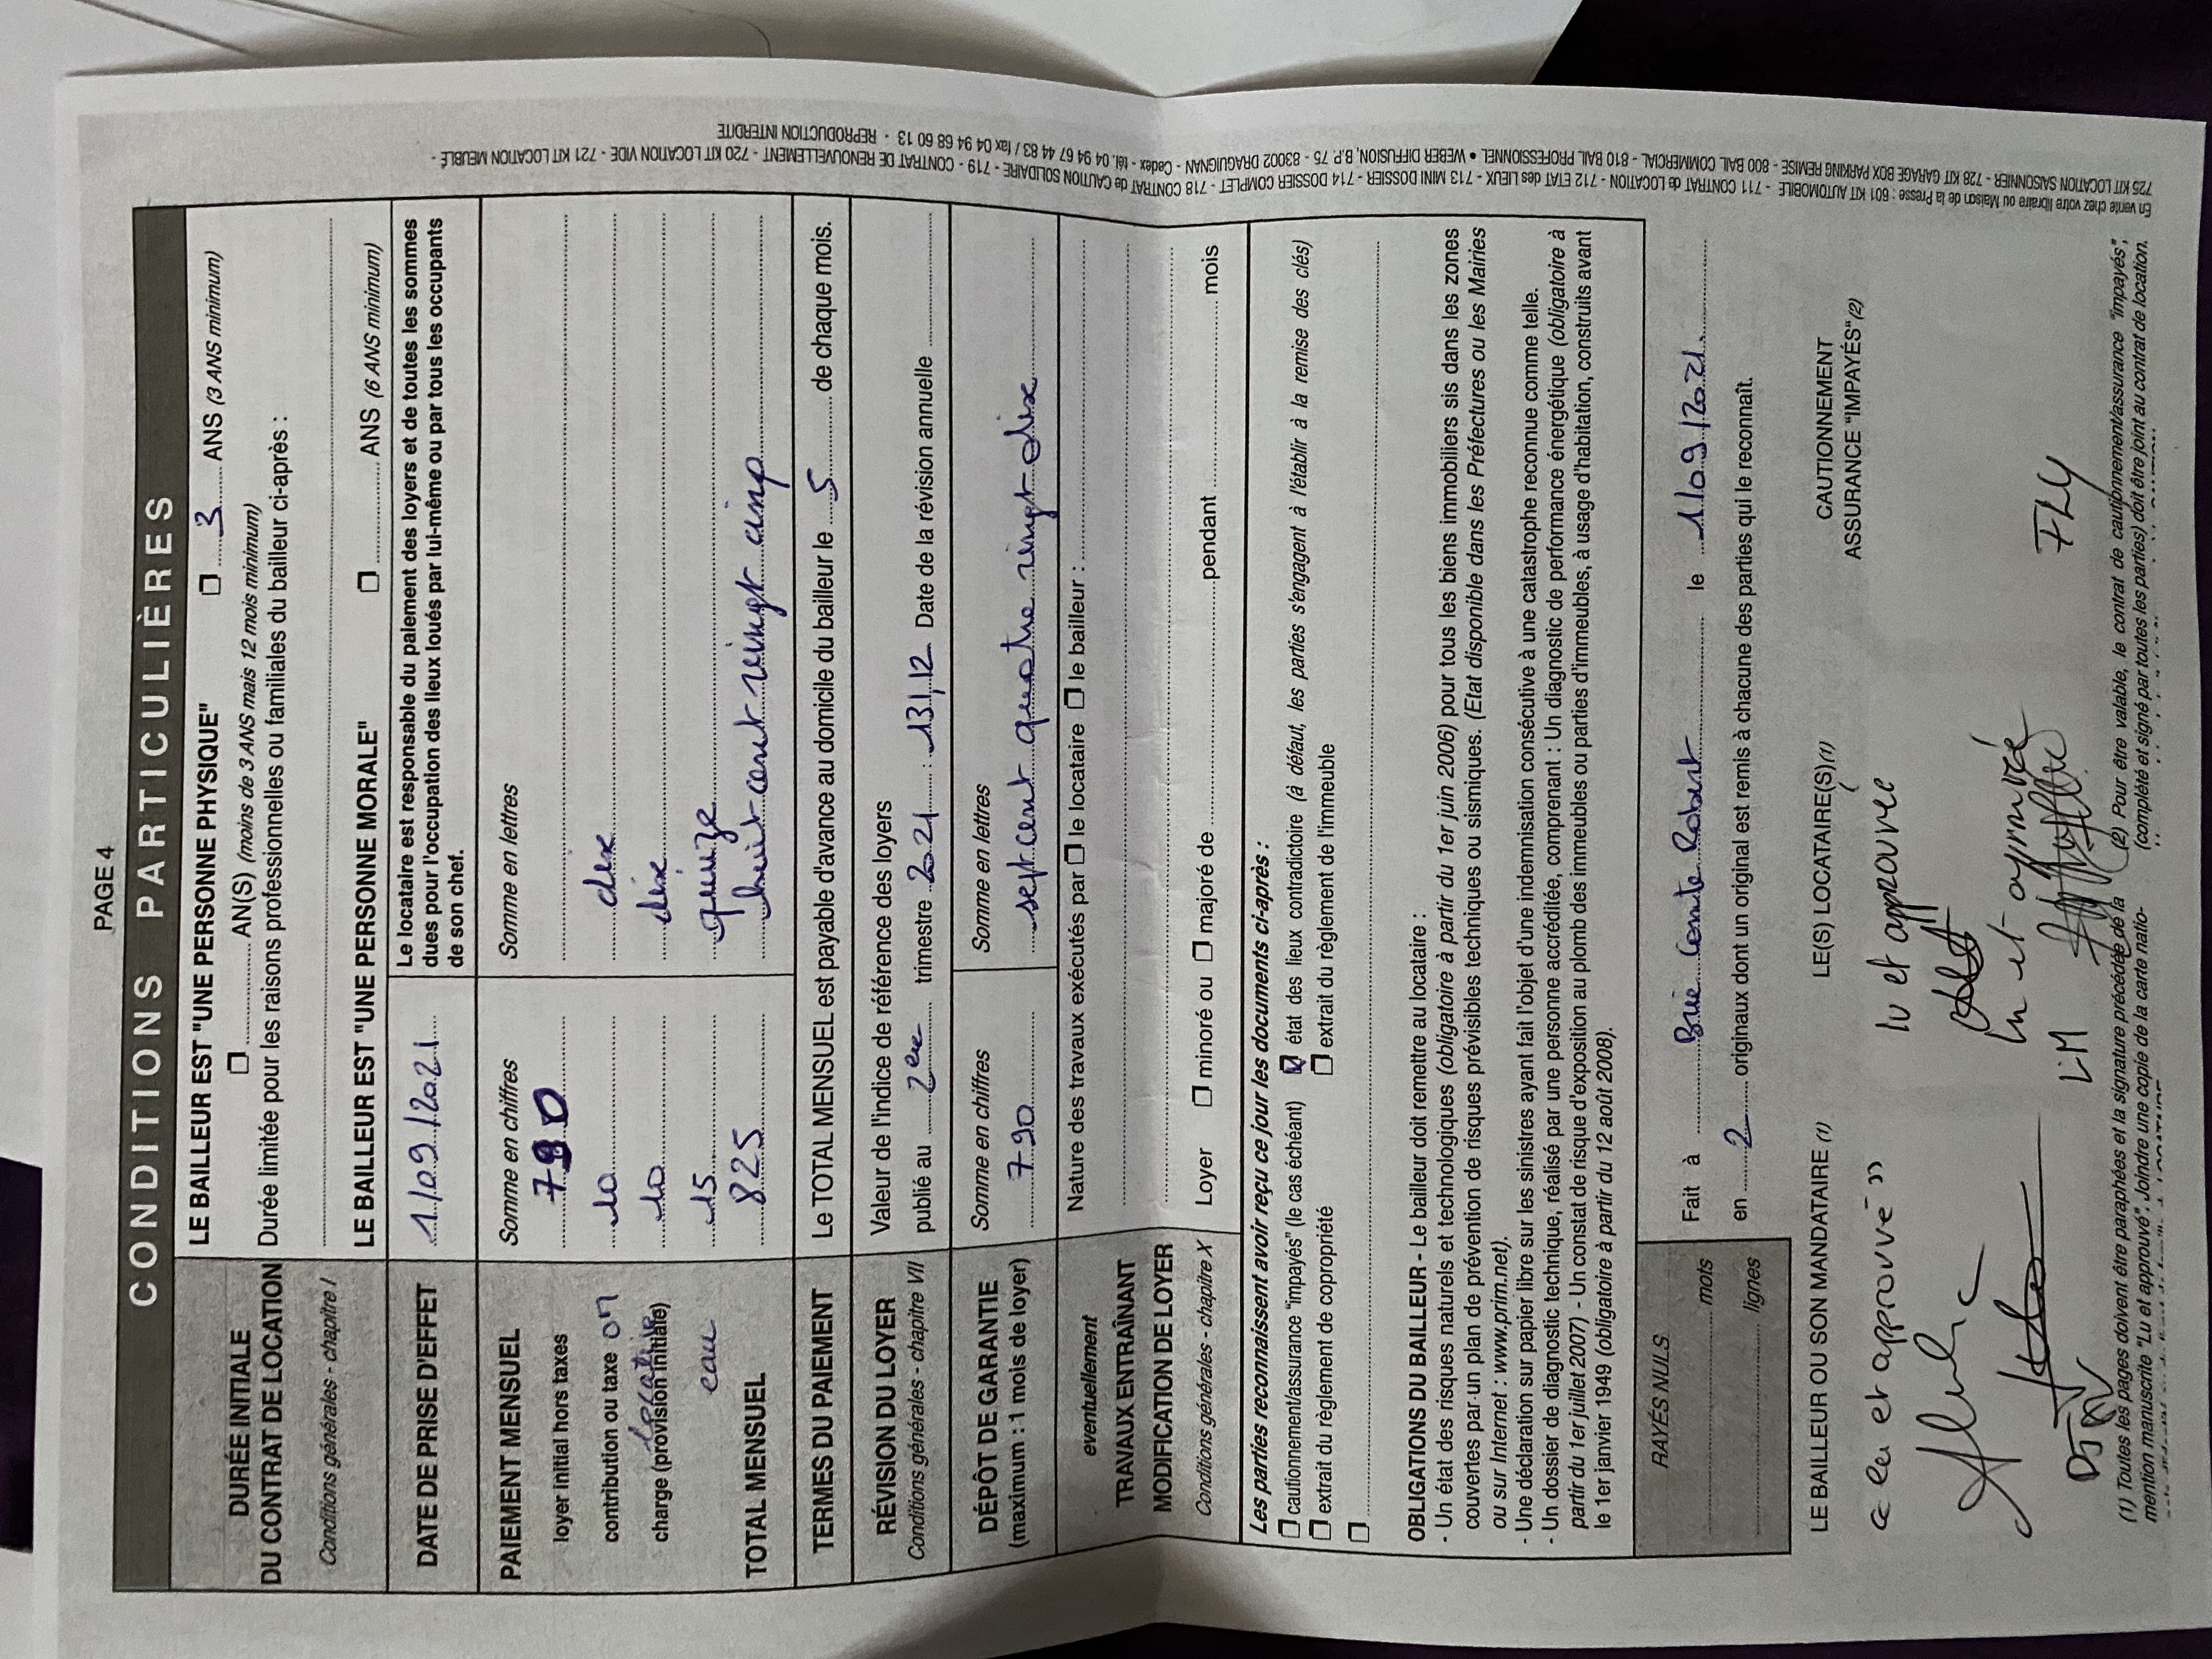 PAGE 4
CONDITIONS PARTICULIÈRES
DURÉE INITIALE
DU CONTRAT DE LOCATION
Conditions générales - chapitre I
LE BAILLEUR EST "UNE PERSONNE PHYSIQUE" ❏ 3 ANS (3 ANS minimum)
❏ AN(S) (moins de 3 ANS mais 12 mois minimum)
Durée limitée pour les raisons professionnelles ou familiales du bailleur ci-après :
LE BAILLEUR EST "UNE PERSONNE MORALE" ❏ ANS (6 ANS minimum)
DATE DE PRISE D'EFFET
1/09/2021
Le locataire est responsable du paiement des loyers et de toutes les sommes
dues pour l'occupation des lieux loués par lui-même ou par tous les occupants
de son chef.
PAIEMENT MENSUEL Somme en chiffres Somme en lettres
loyer initial hors taxes 790
contribution ou taxe om 10 dix
charge (provision initiale) locative 10 dix
eau 15 quinze
TOTAL MENSUEL 825 huit cent vingt cinq
TERMES DU PAIEMENT Le TOTAL MENSUEL est payable d'avance au domicile du bailleur le 5 de chaque mois.
RÉVISION DU LOYER
Conditions générales - chapitre VII
Valeur de l'indice de référence des loyers
publié au 2ere trimestre 2021 : 131,12 Date de la révision annuelle
DÉPÔT DE GARANTIE
(maximum : 1 mois de loyer)
Somme en chiffres Somme en lettres
790 sept cent quatre vingt dix
eventuellement
TRAVAUX ENTRAÎNANT
MODIFICATION DE LOYER
Conditions générales - chapitre X
Nature des travaux exécutés par ❏ le locataire ❏ le bailleur :
Loyer ❏ minoré ou ❏ majoré de pendant mois
Les parties reconnaissent avoir reçu ce jour les documents ci-après :
❏ cautionnement/assurance "impayés" (le cas échéant) ☑ état des lieux contradictoire (à défaut, les parties s'engagent à l'établir à la remise des clés)
❏ extrait du règlement de copropriété ❏ extrait du règlement de l'immeuble
❏
OBLIGATIONS DU BAILLEUR - Le bailleur doit remettre au locataire :
- Un état des risques naturels et technologiques (obligatoire à partir du 1er juin 2006) pour tous les biens immobiliers sis dans les zones
couvertes par un plan de prévention de risques prévisibles techniques ou sismiques. (Etat disponible dans les Préfectures ou les Mairies
ou sur Internet : www.prim.net).
- Une déclaration sur papier libre sur les sinistres ayant fait l'objet d'une indemnisation consécutive à une catastrophe reconnue comme telle.
- Un dossier de diagnostic technique, réalisé par une personne accréditée, comprenant : Un diagnostic de performance énergétique (obligatoire à
partir du 1er juillet 2007) - Un constat de risque d'exposition au plomb des immeubles ou parties d'immeubles, à usage d'habitation, construits avant
le 1er janvier 1949 (obligatoire à partir du 12 août 2008).
RAYÉS NULS
mots
lignes
Fait à Brie Comte Robert le 1/09/2021
en 2 originaux dont un original est remis à chacune des parties qui le reconnaît.
LE BAILLEUR OU SON MANDATAIRE (1) LE(S) LOCATAIRE(S)(1) CAUTIONNEMENT
ASSURANCE "IMPAYÉS"(2)
« lu et approuvé » lu et approuvee
lu et approuvée
LM
(1) Toutes les pages doivent être paraphées et la signature précédée de la
mention manuscrite "Lu et approuvé". Joindre une copie de la carte natio-
(2) Pour être valable, le contrat de cautionnement/assurance "impayés",
(complété et signé par toutes les parties) doit être joint au contrat de location.
En vente chez votre libraire ou Maison de la Presse : 601 KIT AUTOMOBILE - 711 CONTRAT de LOCATION - 712 ETAT des LIEUX - 713 MINI DOSSIER - 714 DOSSIER COMPLET - 718 CONTRAT de CAUTION SOLIDAIRE - 719 - CONTRAT DE RENOUVELLEMENT - 720 KIT LOCATION VIDE - 721 KIT LOCATION MEUBLÉ -
725 KIT LOCATION SAISONNIER - 728 KIT GARAGE BOX PARKING REMISE - 800 BAIL COMMERCIAL - 810 BAIL PROFESSIONNEL • WEBER DIFFUSION, B.P. 75 - 83002 DRAGUIGNAN - Cedex - tél. 04 94 67 44 83 / fax 04 94 68 60 13 - REPRODUCTION INTERDITE